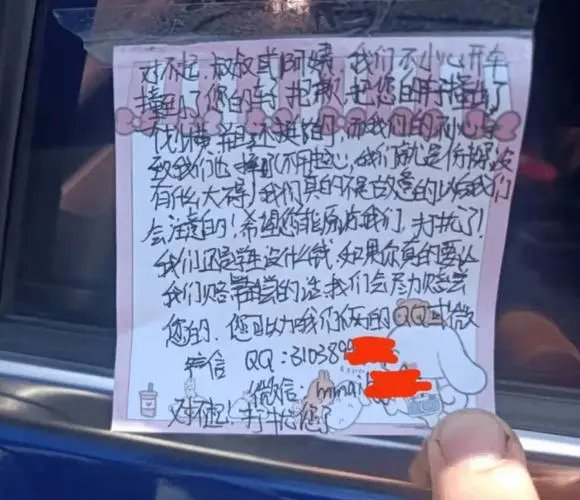 对不起,叔叔或阿姨,我们不小心开车
撞到了您的车,抱歉,把您的车子撞出了
划横还挺陷的,而我们的不小心导
致我们也摔了(不用担心,我们就是伤没
有什么大碍)我们真的不是故意的以后我们
会注意的!希望您能原谅我们,打扰了!
我们还是学生没什么钱,如果你真的要让
我们赔偿的话,我们会尽力赔偿
您的.您可以加我们俩的QQ或微
信 QQ:310389
微信:
对不起!打扰您了